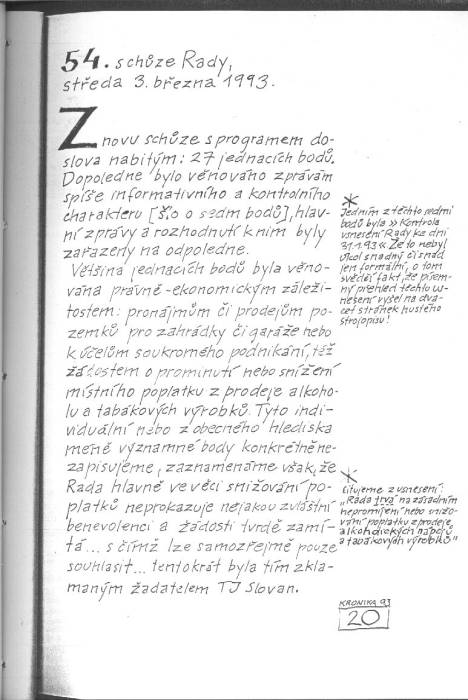 54. schůze Rady,
středa 3. března 1993.
Znovu schůze s programem do-
slova nabitým: 27 jednacích bodů.
Dopoledne bylo věnováno zprávám
spíše informativního a kontrolního
charakteru [šlo o sedm bodů], hlav-
ní zprávy a rozhodnutí k nim byly
zařazeny na odpoledne.
Většina jednacích bodů byla věno-
vána právně-ekonomickým záleži-
tostem: pronájmům či prodejům po-
zemků pro zahrádky či garáže nebo
k účelům soukromého podnikání, též
žádostem o prominutí nebo snížení
místního poplatku z prodeje alkoho-
lu a tabákových výrobků. Tyto indi-
viduální nebo z obecného hlediska
méně významné body konkrétně ne-
zapisujeme, zaznamenáme však, že
Rada hlavně ve věci snižování po-
platků neprokazuje nějakou zvláštní
benevolenci a žádosti tvrdě zamí-
tá... s čímž lze samozřejmě pouze
souhlasit... tentokrát byla tím zkla-
maným žadatelem TJ Slovan.
*
Jedním z těchto sedmi
bodů byla »Kontrola
usnesení Rady ke dni
31.1.93« Že to nebyl
úkol snadný či snad
jen formální, o tom
svědčí fakt, že písem-
ný přehled těchto u-
snesení vyšel na dva-
cet stránek hustého
strojopisu!
*
Citujeme z usnesení:
„Rada trvá na zásadním
nepromíjení nebo snižo-
vání poplatku z prodeje
alkoholických nápojů
a tabákových výrobků"
KRONIKA 93
20